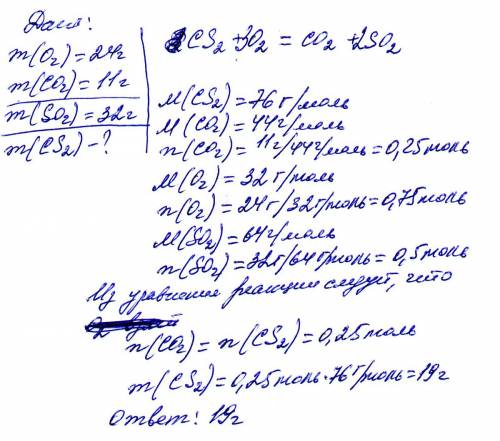 Дано:
m(O₂)=24г
m(CO₂)=11г
m(SO₂)=32г
m(CS₂)-?
CS₂+3O₂ = CO₂+2SO₂
M(CS₂)=76г/моль
M(CO₂)=44г/моль
n(CO₂)=11г/44г/моль=0,25моль
M(O₂)=32г/моль
n(O₂)=24г/32г/моль=0,75моль
M(SO₂)=64г/моль
n(SO₂)=32г/64г/моль=0,5моль
Из уравнения реакции следует, что
n(CO₂)=n(CS₂)=0,25моль
m(CS₂)=0,25моль·76г/моль=19г
Ответ: 19г